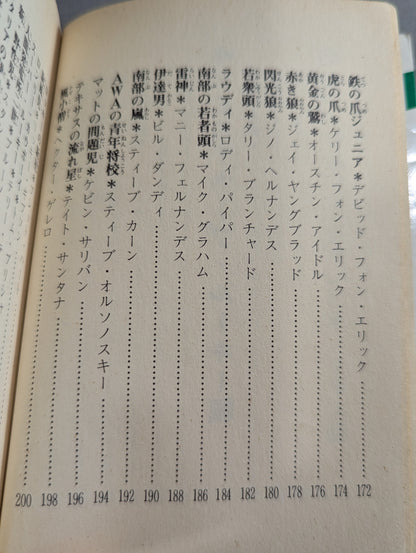 鉄の爪ジュニア＊デビッド・フォン・エリック……172
虎の爪＊ケリー・フォン・エリック……174
黄金の鷲＊オースチン・アイドル……176
赤き狼＊ジェイ・ヤングブラッド……178
閃光狼＊ジノ・ヘルナンデス……180
若衆頭＊タリー・ブランチャード……182
ラウディ＊ロディ・パイパー……184
南部の若者頭＊マイク・グラハム……186
雷神＊マニー・フェルナンデス……188
伊達男＊ビル・ダンディ……190
南部の嵐＊スティーブ・カーン……192
AWAの青年将校＊スティーブ・オルソノスキー……194
マットの問題児＊ケビン・サリバン……196
テキサスの流れ星＊テイト・サンタナ……198
小僧＊ヘクター・ゲレロ……200